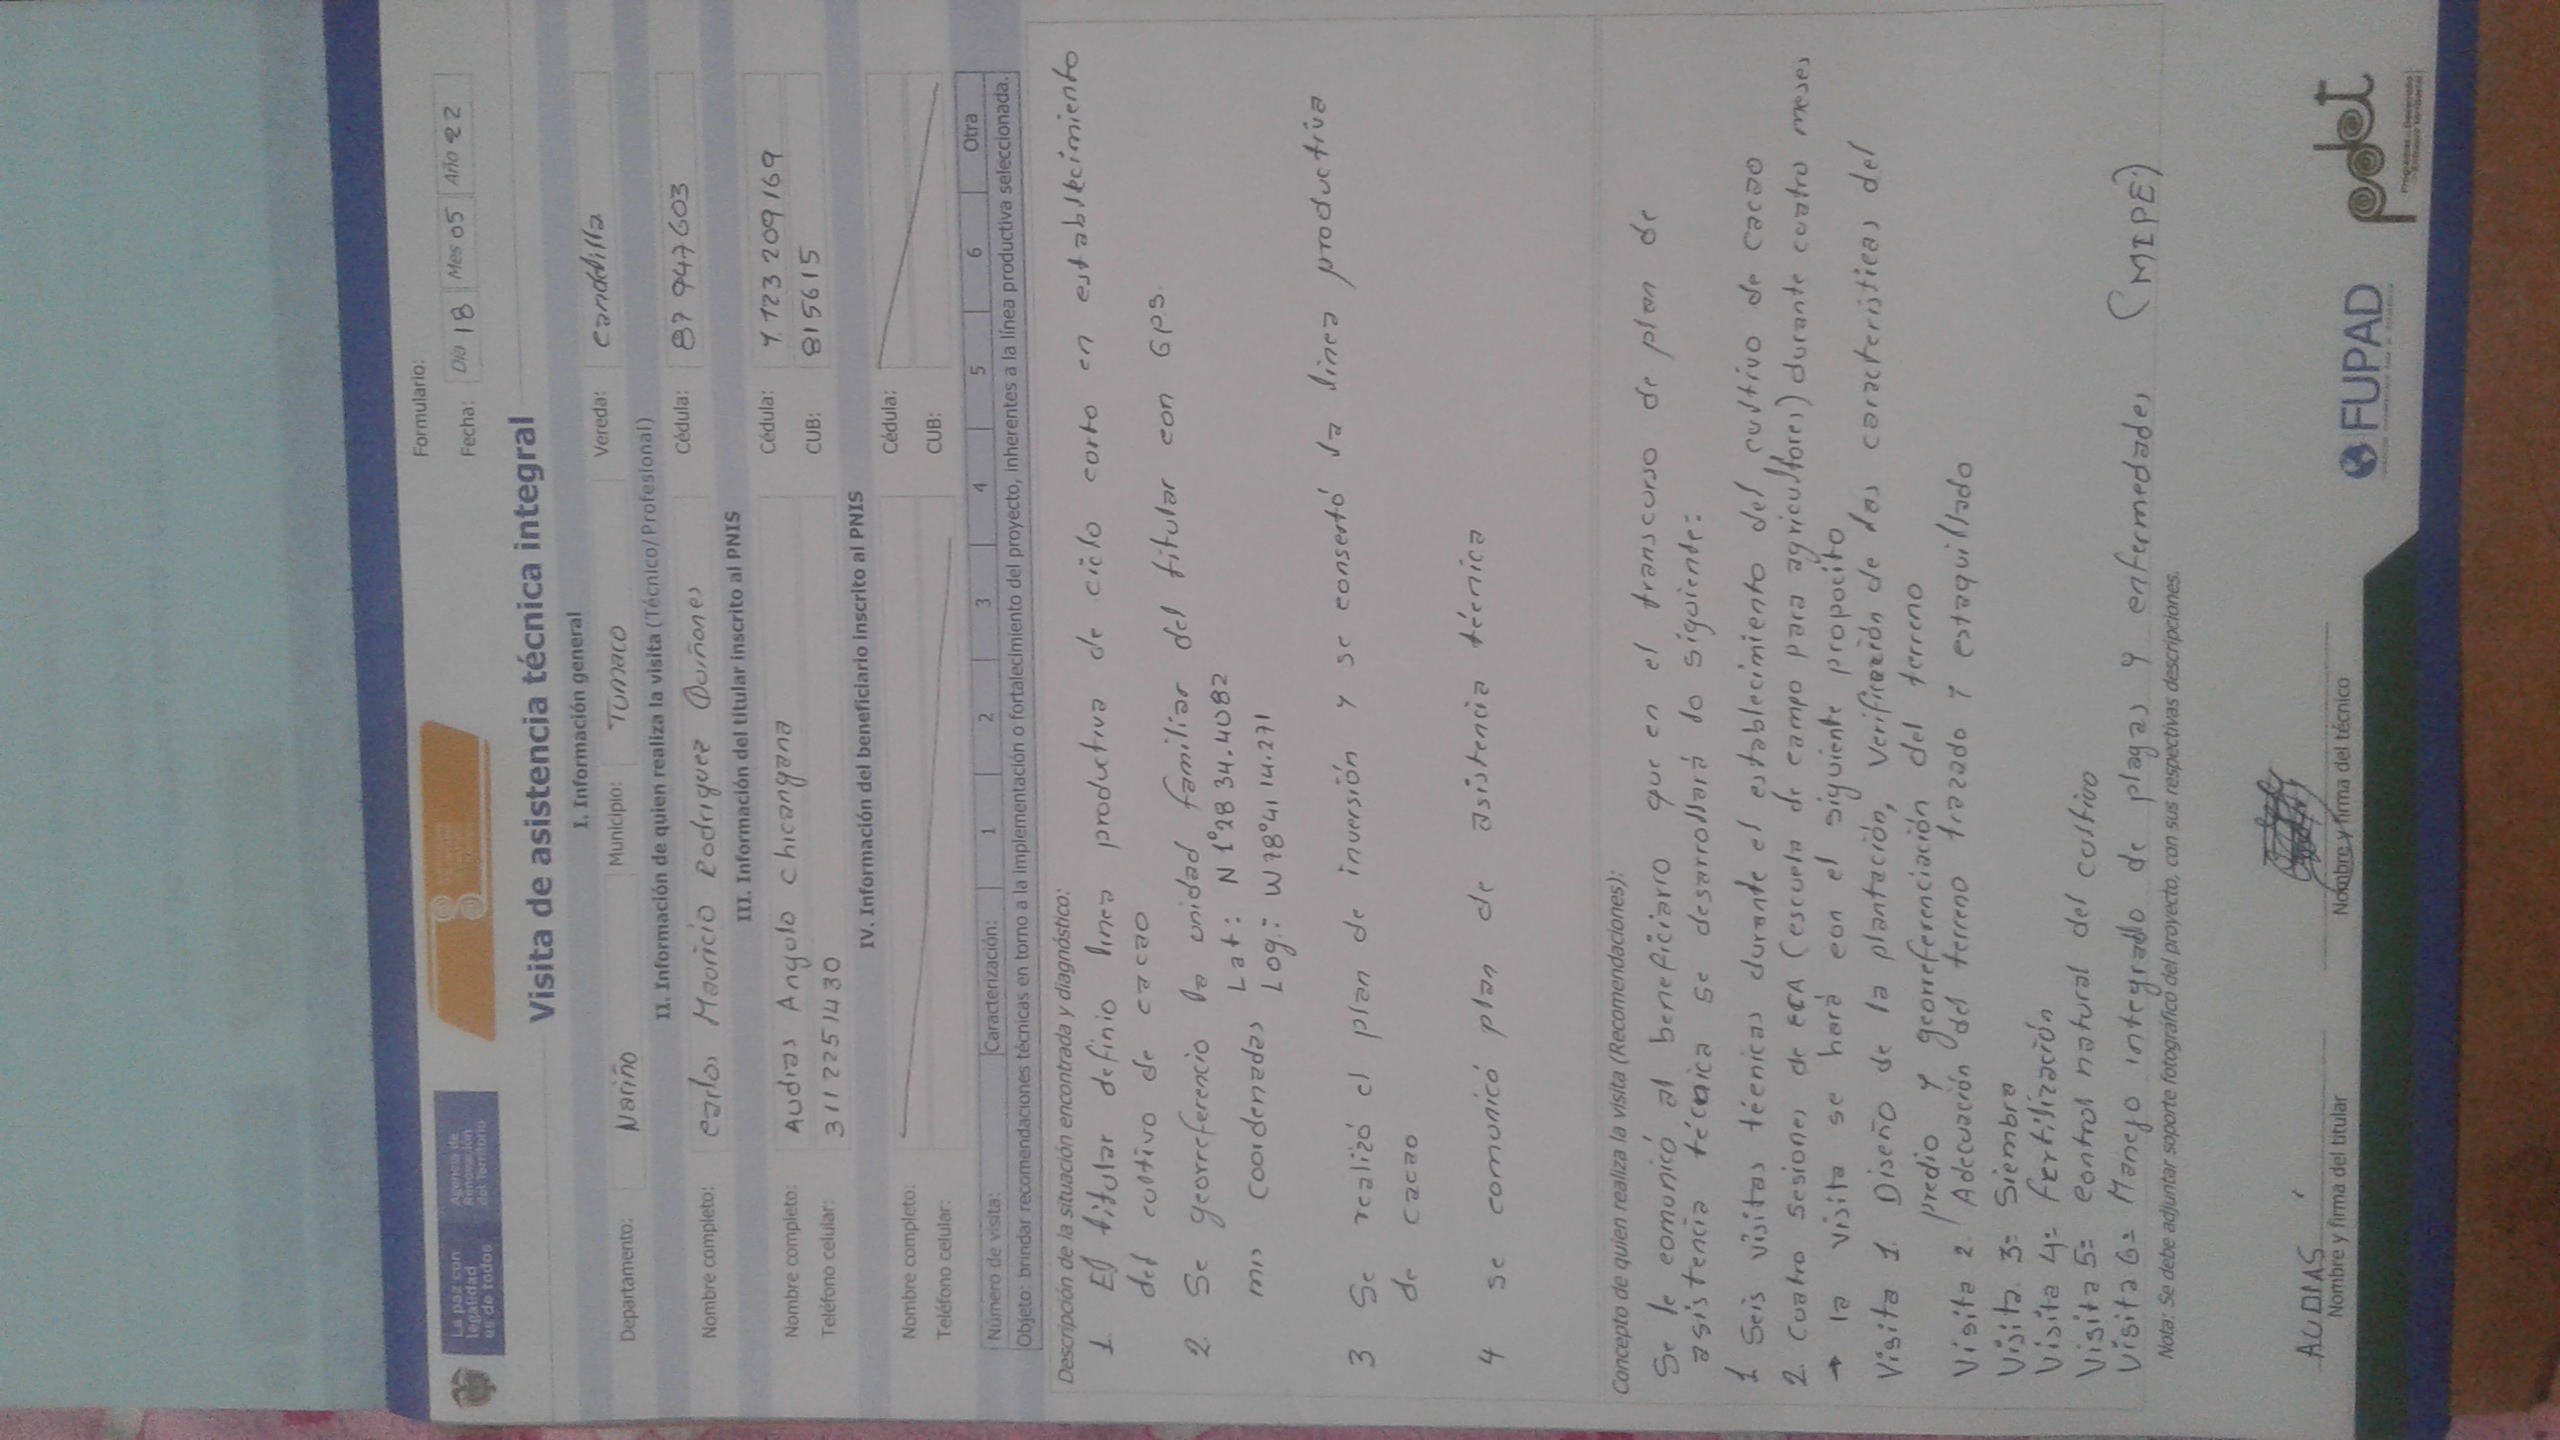 La paz con
legalidad
es de todos
Agencia de
Renovación
del Territorio
Formulario:
Fecha: Día 18 Mes 05 Año 22
Visita de asistencia técnica integral
I. Información general
Departamento: Nariño Municipio: Tumaco Vereda: candelilla
II. Información de quien realiza la visita (Técnico/Profesional)
Nombre completo: carlos Mauricio Rodriguez Quiñones Cédula: 87 947603
III. Información del titular inscrito al PNIS
Nombre completo: Audias Angulo chicangana Cédula: 1.123209169
Teléfono celular: 3112251430 CUB: 815615
IV. Información del beneficiario inscrito al PNIS
Nombre completo: Cédula:
Teléfono celular: CUB:
Número de visita: Caracterización: 1 2 3 4 5 6 Otra
Objeto: brindar recomendaciones técnicas en torno a la implementación o fortalecimiento del proyecto, inherentes a la línea productiva seleccionada.
Descripción de la situación encontrada y diagnóstico:
1. El titular definio linea productiva de ciclo corto en establecimiento
del cultivo de cacao
2. Se georreferencio la unidad familiar del titular con GPS.
mis coordenadas Lat: N 1°28 34.4082
Log: W78°41 14.271
3 Se realizó el plan de inversión y se consertó la linea productiva
de cacao
4 se comunicó plan de asistencia técnica
Concepto de quien realiza la visita (Recomendaciones):
Se le comunicó al beneficiario que en el transcurso de plan de
asistencia técnica se desarrollará lo siguiente:
1 Seis visitas técnicas durante el establecimiento del cultivo de cacao
2. Cuatro Sesiones de ECA (escuela de campo para agricultores) durante cuatro meses
→ la visita se hará con el siguiente proposito
Visita 1. Diseño de la plantación, verificación de las caracteristicas del
predio y georreferenciación del terreno
Visita 2. Adecuación del terreno trazado y estaquillado
Visita 3= Siembra
Visita 4= fertilización
Visita 5= control natural del cultivo
Visita 6= Manejo integrado de plagas y enfermedades (MIPE)
Nota: Se debe adjuntar soporte fotográfico del proyecto, con sus respectivas descripciones.
AUDIAS
Nombre y firma del titular
Nombre y firma del técnico
FUPAD
pdet